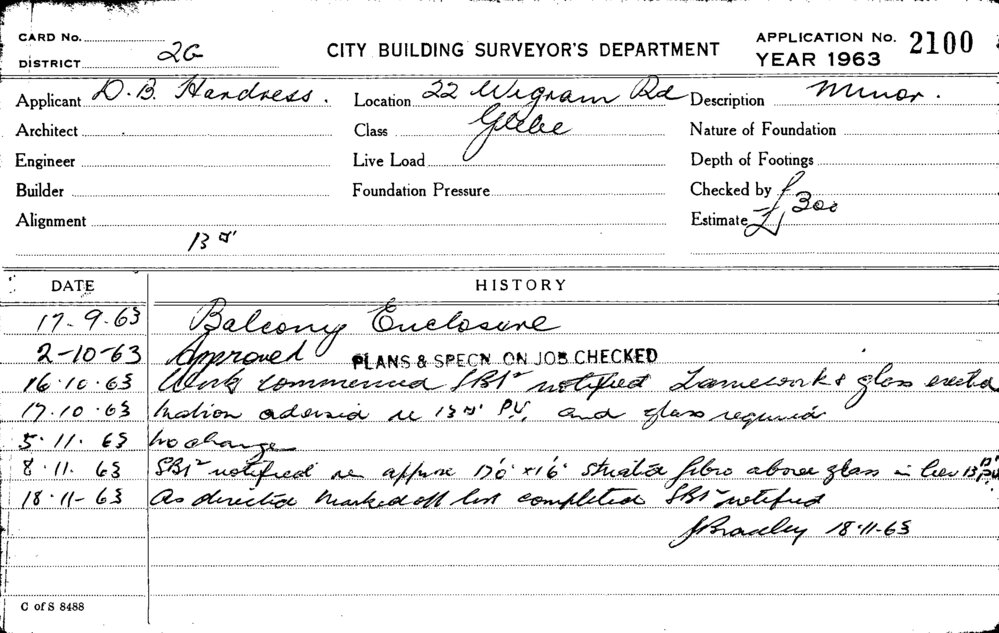 CARD No.
DISTRICT 2G
CITY BUILDING SURVEYOR'S DEPARTMENT
APPLICATION No. 2100
YEAR 1963
Applicant D. B. Handress. Location 22 Wigram Rd Glebe Description Minor.
Architect Class Nature of Foundation
Engineer Live Load Depth of Footings
Builder Foundation Pressure Checked by
Alignment Estimate £300
13
DATE HISTORY
17-9-63 Balcony Enclosure
2-10-63 Approved PLANS & SPECN. ON JOB CHECKED
16.10.63 Work commenced notified glass erected
17.10.63 re P.V. and glass required
5.11.63 No change
8.11.63 notified re fibro above glass in lieu
18-11-63 As directed Marked off list completed notified
JBradley 18-11-63
C of S 8488